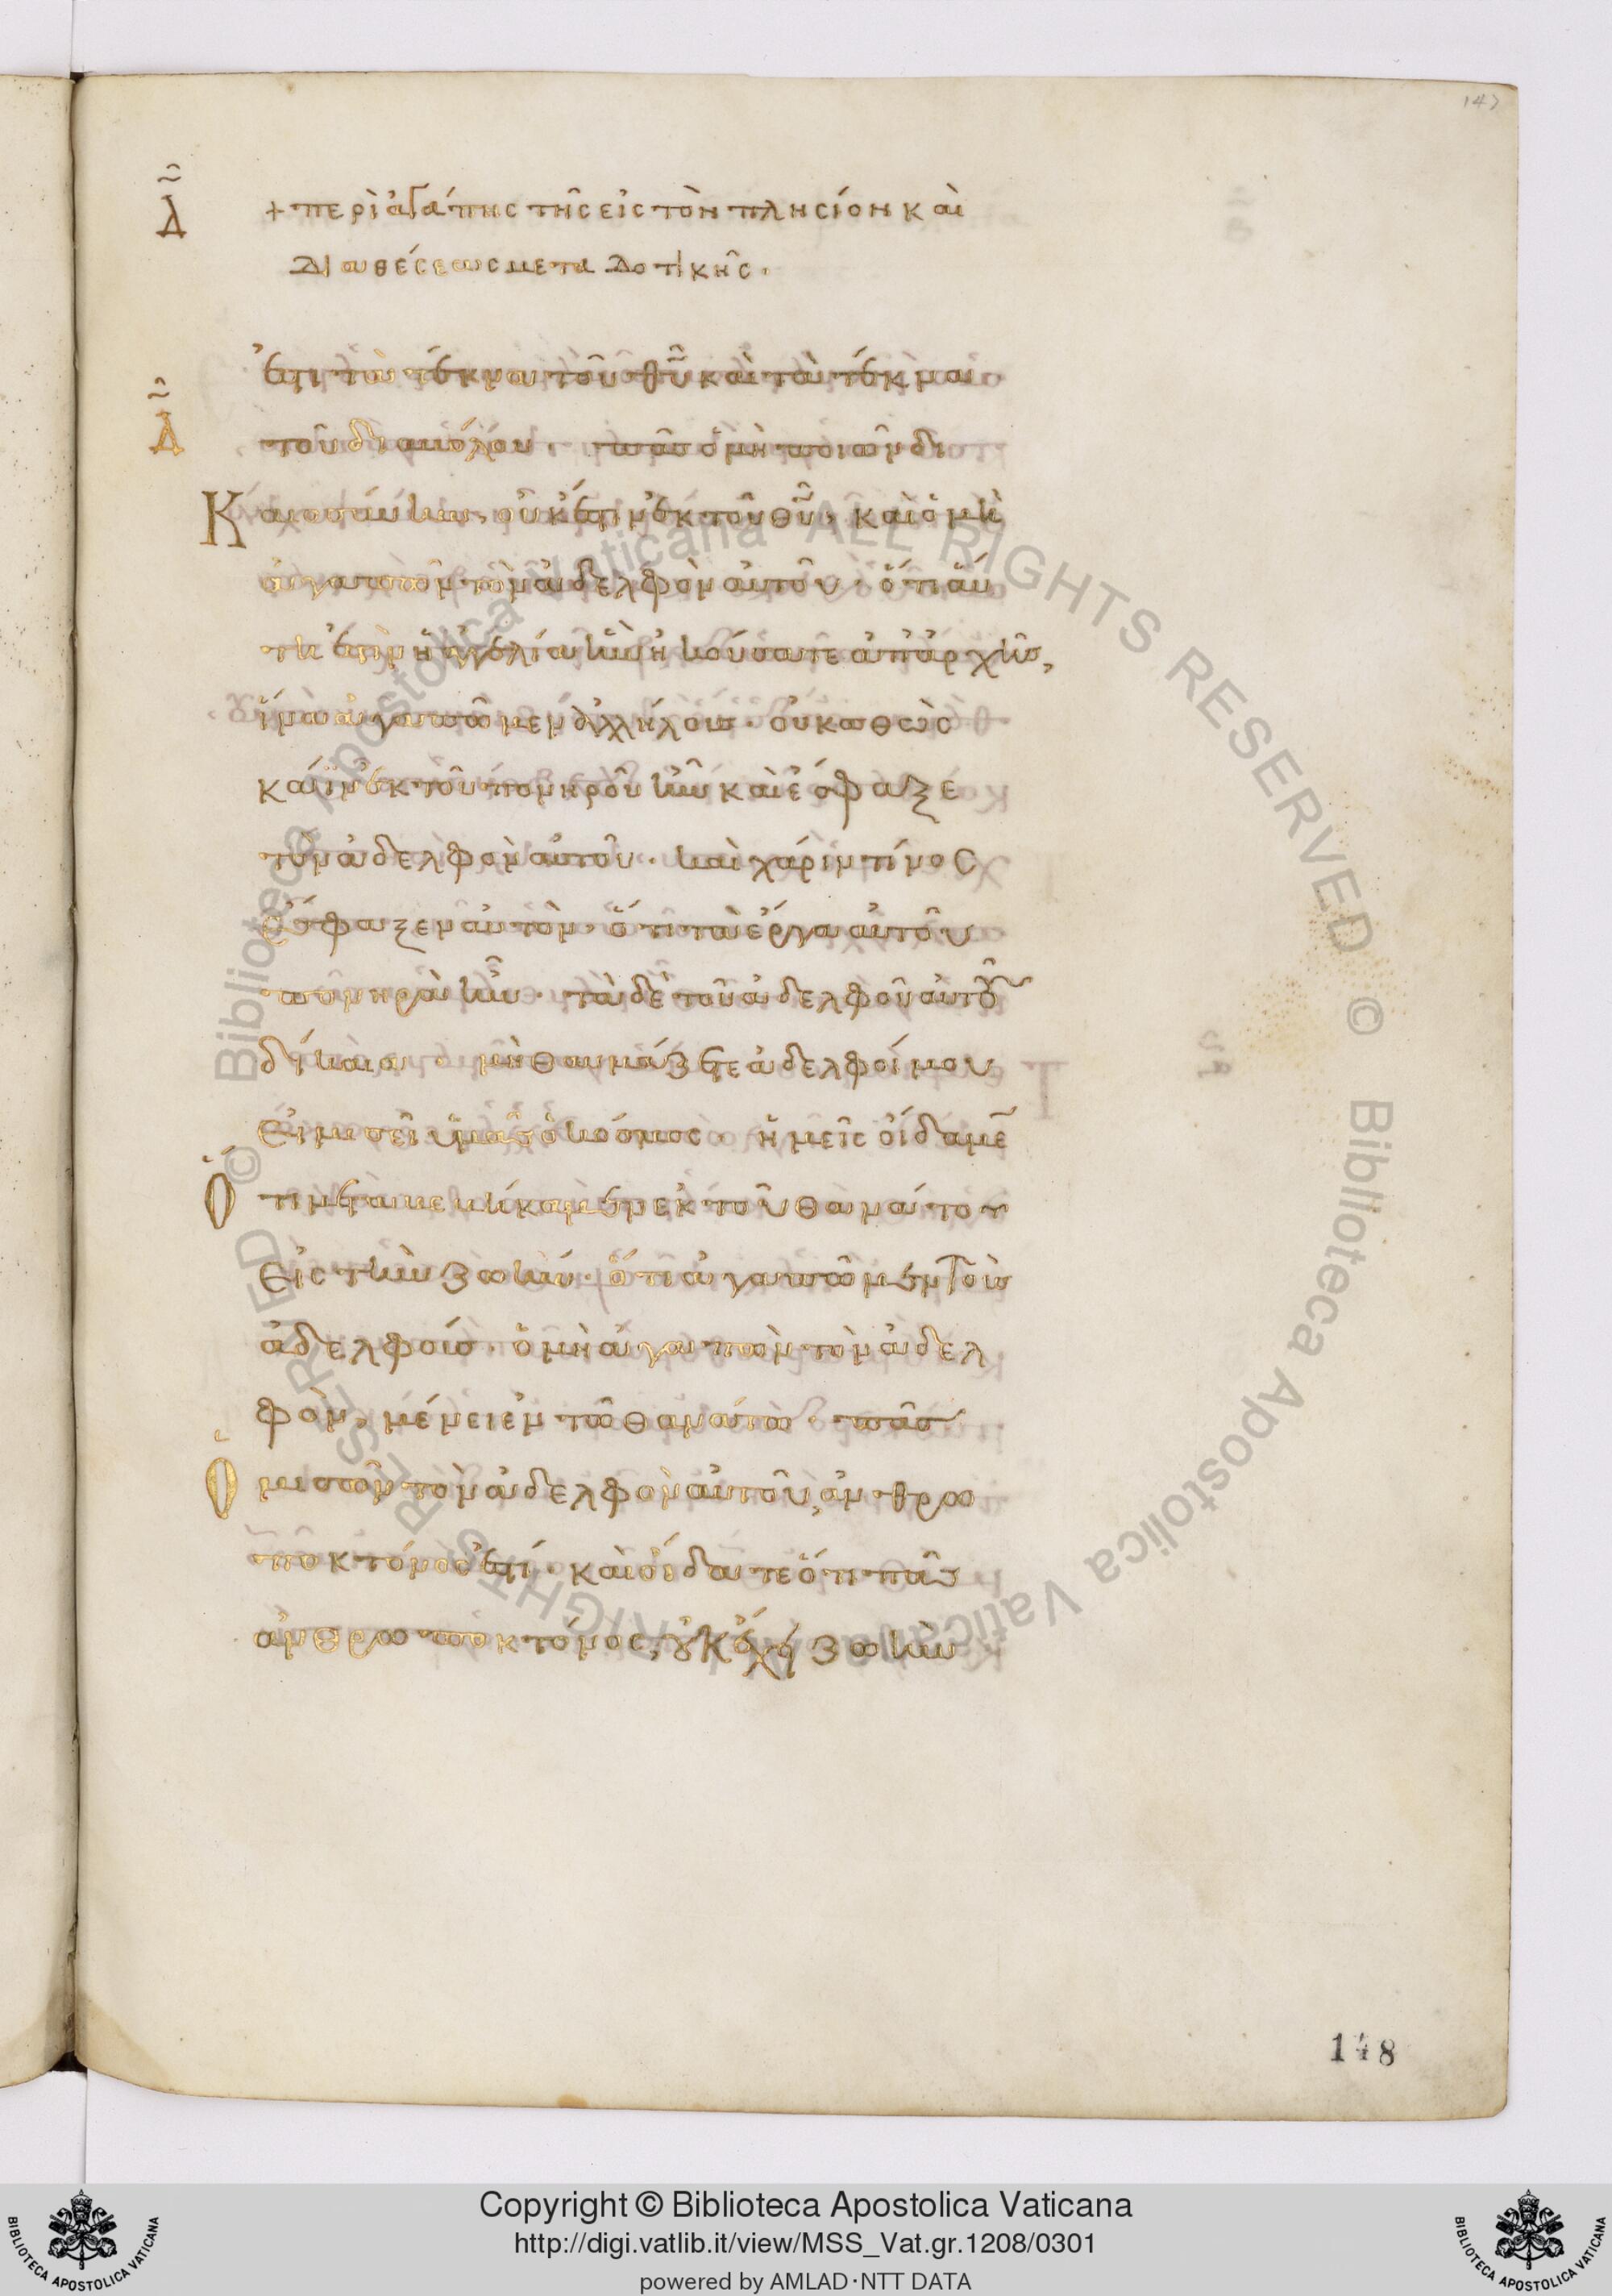 147
Δ + περὶ ἀγάπης τῆς εἰς τὸν πλησίον καὶ
διαθέσεως μεταδοτικῆς.
ἐστι τὰ τέκνα τοῦ θῦ καὶ τὰ τέκνα
Δ τοῦ διαβόλου. πᾶς ὁ μὴ ποιῶν δι
Καιοσύνην, οὐκ ἔστιν ἐκ τοῦ θῦ, καὶ ὁ μὴ
ἀγαπῶν τὸν ἀδελφὸν αὐτοῦ. ὅτι αὕ
τη ἐστὶν ἡ ἀγγελία ἣν ἠκούσατε ἀπ' ἀρχῆς,
ἵνα ἀγαπῶμεν ἀλλήλους. οὐ καθὼς
κάϊν ἐκ τοῦ πονηροῦ ἦν καὶ ἔσφαξε
τὸν ἀδελφὸν αὐτοῦ. καὶ χάριν τίνος
ἔσφαξεν αὐτὸν, ὅτι τὰ ἔργα αὐτοῦ
πονηρὰ ἦν. τὰ δὲ τοῦ ἀδελφοῦ αὐτοῦ
δίκαια. μὴ θαυμάζετε ἀδελφοί μου
εἰ μισεῖ ὑμᾶς ὁ κόσμος. ἡμεῖς οἴδαμε̄
Ὅτι μεταβεβήκαμεν ἐκ τοῦ θανάτου
εἰς τὴν ζωήν. ὅτι ἀγαπῶμεν τοὺς
ἀδελφούς. ὁ μὴ ἀγαπῶν τὸν ἀδελ
φὸν, μένει ἐν τῶ θανάτω. πᾶς
Ὁ μισῶν τὸν ἀδελφὸν αὐτοῦ, ἀνθρω
ποκτόνος ἐστί. καὶ οἴδατε ὅτι πᾶς
ἀνθρωποκτόνος, οὐκ ἔχει ζωὴν
148
Copyright © Biblioteca Apostolica Vaticana
http://digi.vatlib.it/view/MSS_Vat.gr.1208/0301
powered by AMLAD·NTT DATA
BIBLIOTECA APOSTOLICA VATICANA
BIBLIOTECA APOSTOLICA VATICANA
© Biblioteca Apostolica Vaticana ALL RIGHTS RESERVED © Biblioteca Apostolica Vaticana ALL RIGHTS RESERVED